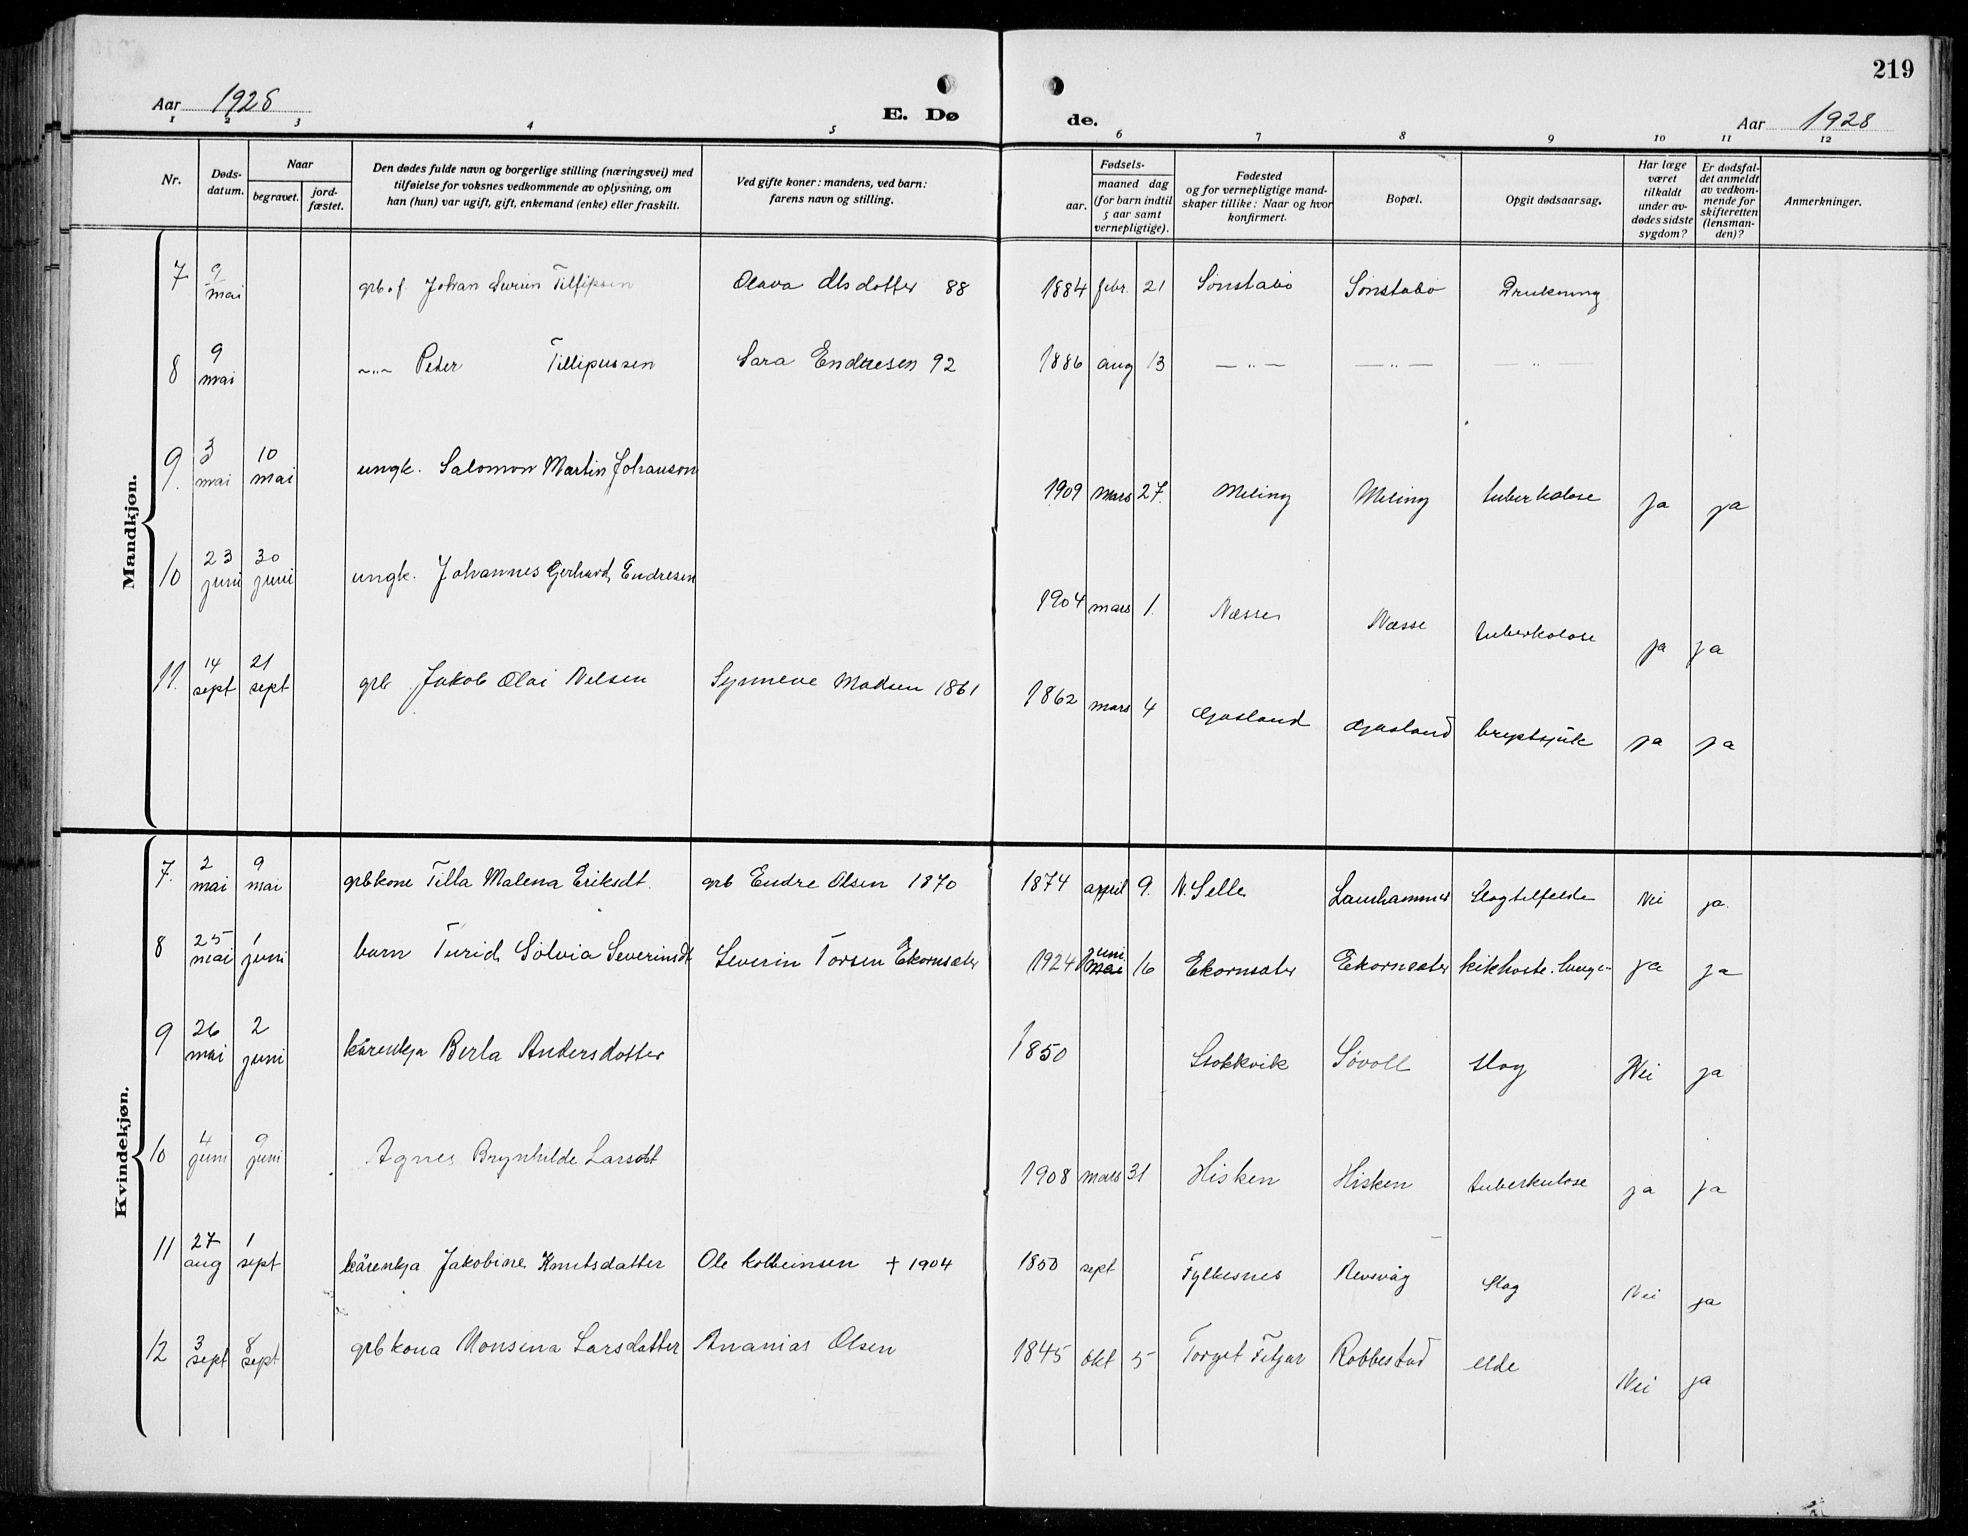 219
Aar 1928
E. Dø de.
Aar 1928
1 2 3 4 5 6 7 8 9 10 11 12
Nr.
Døds-
datum.
Naar
begravet.
jord-
fæstet.
Den dødes fulde navn og borgerlige stilling (næringsvei) med
tilføielse for voksnes vedkommende av oplysning, om
han (hun) var ugift, gift, enkemand (enke) eller fraskilt.
Ved gifte koner: mandens, ved barn:
farens navn og stilling.
Fødsels-
aar.
maaned dag
(for barn indtil
5 aar samt
vernepligtige).
Fødested
og for vernepligtige mand-
skaper tillike: Naar og hvor
konfirmert.
Bopæl.
Opgit dødsaarsag.
Har læge
været
tilkaldt
under av-
dødes sidste
sygdom?
Er dødsfal-
det anmeldt
av vedkom-
mende for
skifteretten
(lensman-
den)?
Anmerkninger.
Mandkjøn.
7 9 mai Johan Tillipsen Olava Olsdotter 88 1884 febr. 21 Sönstabö Sönstabö Drukning
8 9 mai -"- Peter Tillipussen Sara Endresen 92 1886 aug 13 -"- -"- -"-
9. 3 mai 10 mai ungk. Salomon Martin Johanson 1909 mars 27. Meling Meling tuberkolose ja ja
10 23 juni 30 juni ungk. Johannes Gerhard Endresen 1904 mars 1. Næsse Næsse tuberkolose ja ja
11. 14 sept 21 sept grb Jakob Olai Nelsen Synneve Madsen 1861 1862 mars 4 Gjøsland Gjøsland brystsjuk ja ja
Kvindekjøn.
7. 2 mai 9 mai grbkone Tilla Malena Eriksdt. grb Endre Olsen 1870 1874 april 9. N. Selle Lamhammer Slagtilfelde Nei ja.
8 25 mai 1 juni barn Turid Solvia Severinsdt Severin Torsen Ekornsæter 1924 juni mai 16 Ekornsæter Ekornsæter kikhoste. lunge- ja ja
9 26 mai 2 juni kårenkja Berta Andersdotter 1850 Stokkvik Sövoll slag Nei ja
10 4 juni 9 juni Agnes Brynhilde Larsdt 1908 mars 31 Hisken Hisken tuberkulose ja ja
11 27 aug 1 sept kårenkja Jakobine Knutsdatter Ole Kolbeinsen † 1904 1850 sept Fylkesnes Revsvåg Slag Nei ja
12 3 sept 8 sept grbkona Monsina Larsdatter Ananias Olsen 1845 okt 5 Torget Fitjar Robbestad elde Nei ja